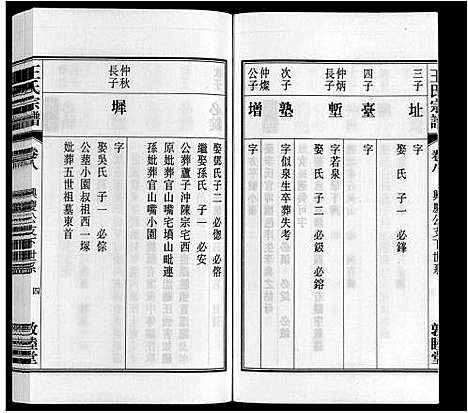 王氏宗譜
卷八
興慶公支下世系
敦睦堂
三子
址
字
娶氏 子一 必鋒
四子
臺
仲炳長子
塹
字若泉
娶氏 子二 必鈒 必鎔
次子
塾
字似泉生卒葬失考
仲燦公子
增
字
娶鄧氏子二 必偬 必傛
繼娶孫氏 子一 必安
公葬蘆子沖陳宗宅西
原妣葬官山嘴宅墳山毗連
孫妣葬官山嘴小園
仲秋長子
墀
字
娶吳氏 子一 必傢
公葬小園叔祖西一塚
妣葬五世祖墓東首
王氏宗譜
卷八
興慶公支下世系
四
敦睦堂